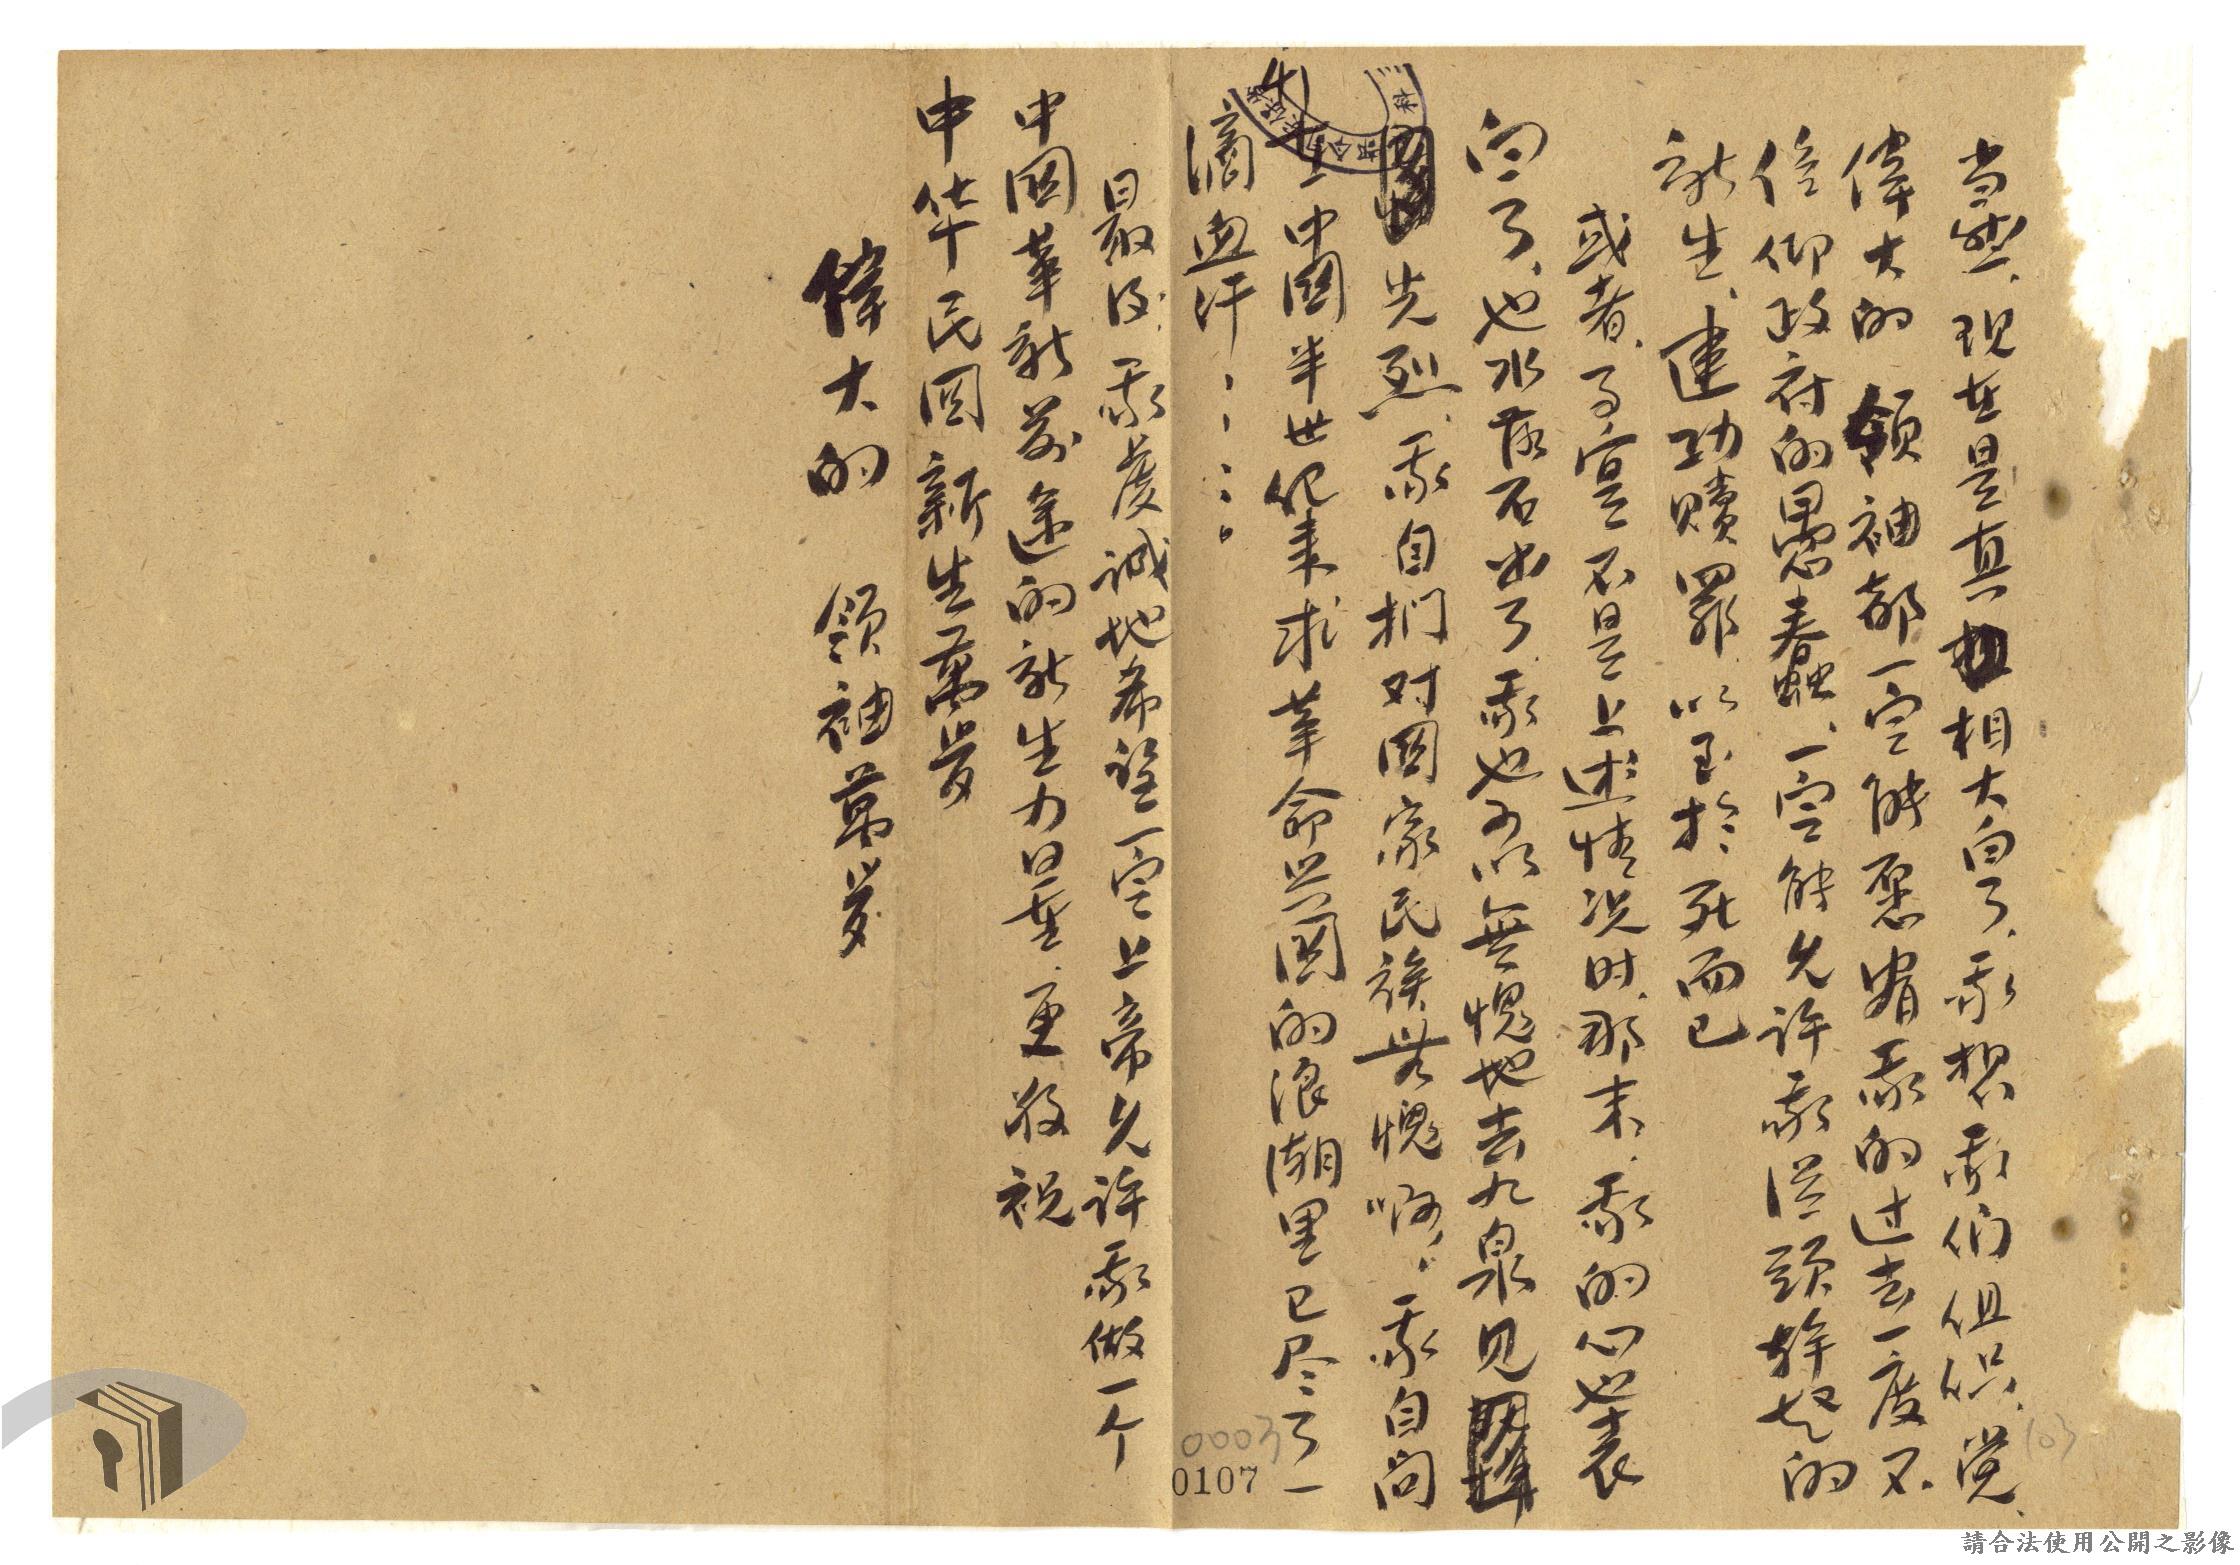 当然、現在是真相大白了、我想我們組织、党、
偉大的 領袖都一定能寬宥我的过去一度不
信仰政府的愚蠢、一定能允許我從頭幹起的
新生、建功贖罪、以至於死而已
或者、事实不是上述情況时、那末、我的心也表
白了、也水落石出了、我也可以無愧地去九泉見
先烈、我自捫对國家民族無愧啊、我自問
在中國半世纪来求革命兴國的浪潮里已尽了一
滴血汗……。
最後、我虔誠地希望一定上帝允許我做一个
中國革新前途的新生力量、更敬祝
中华民国新生萬歲
偉大的 領袖萬歲
0003
0107
103
請合法使用公開之影像